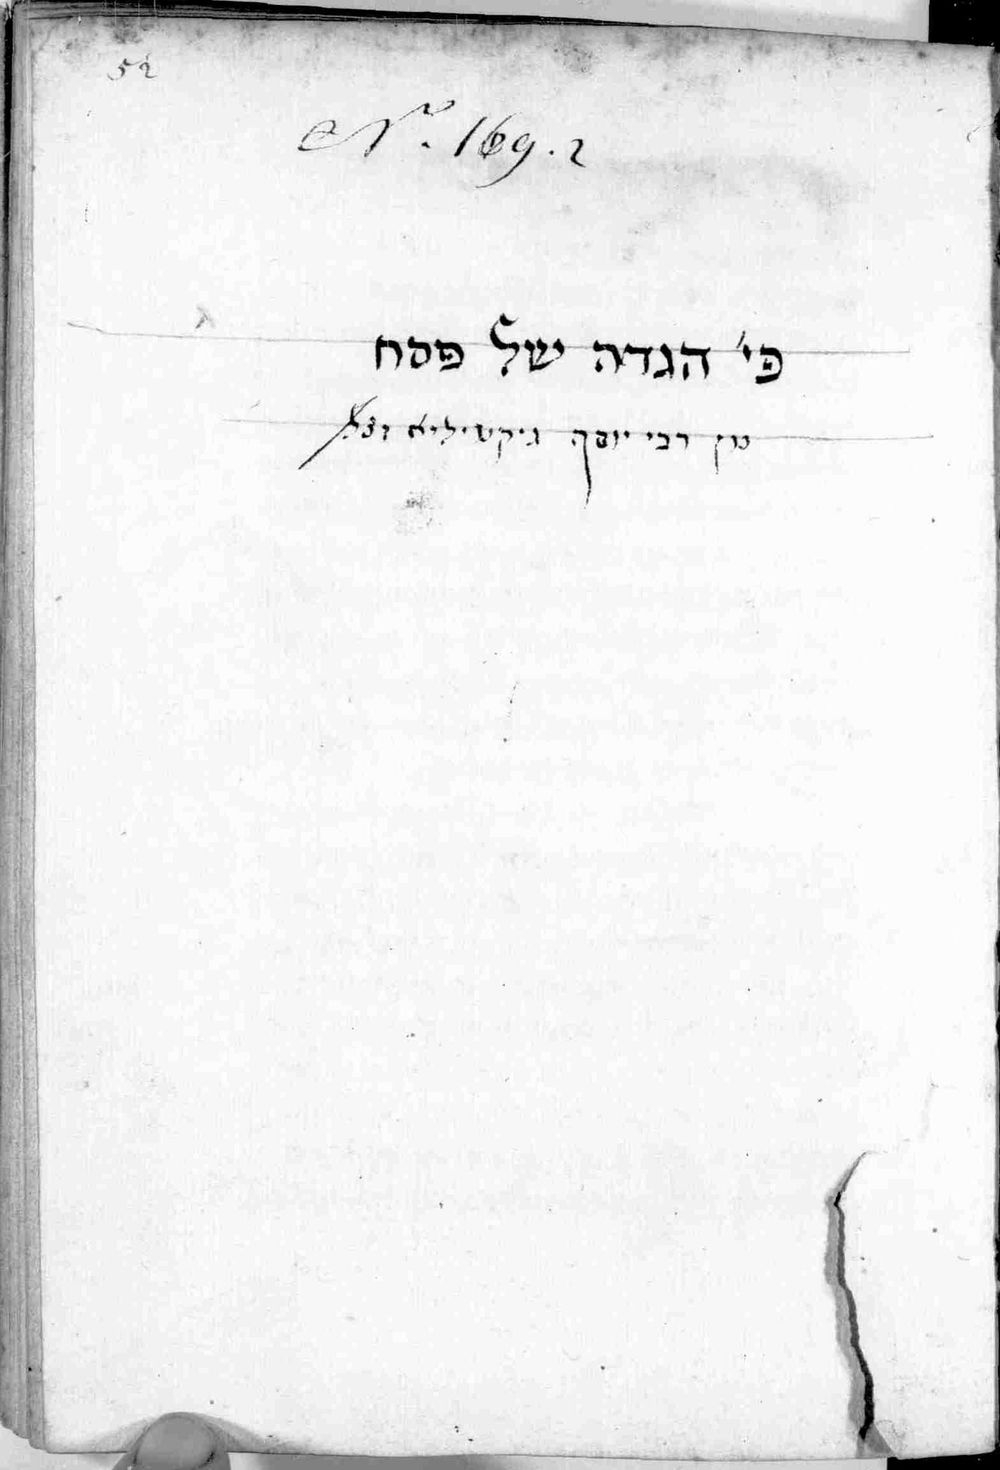 52
No. 169.2
פי' הגדה של פסח
מן רבי יוסף גיקטיליא זצ"ל